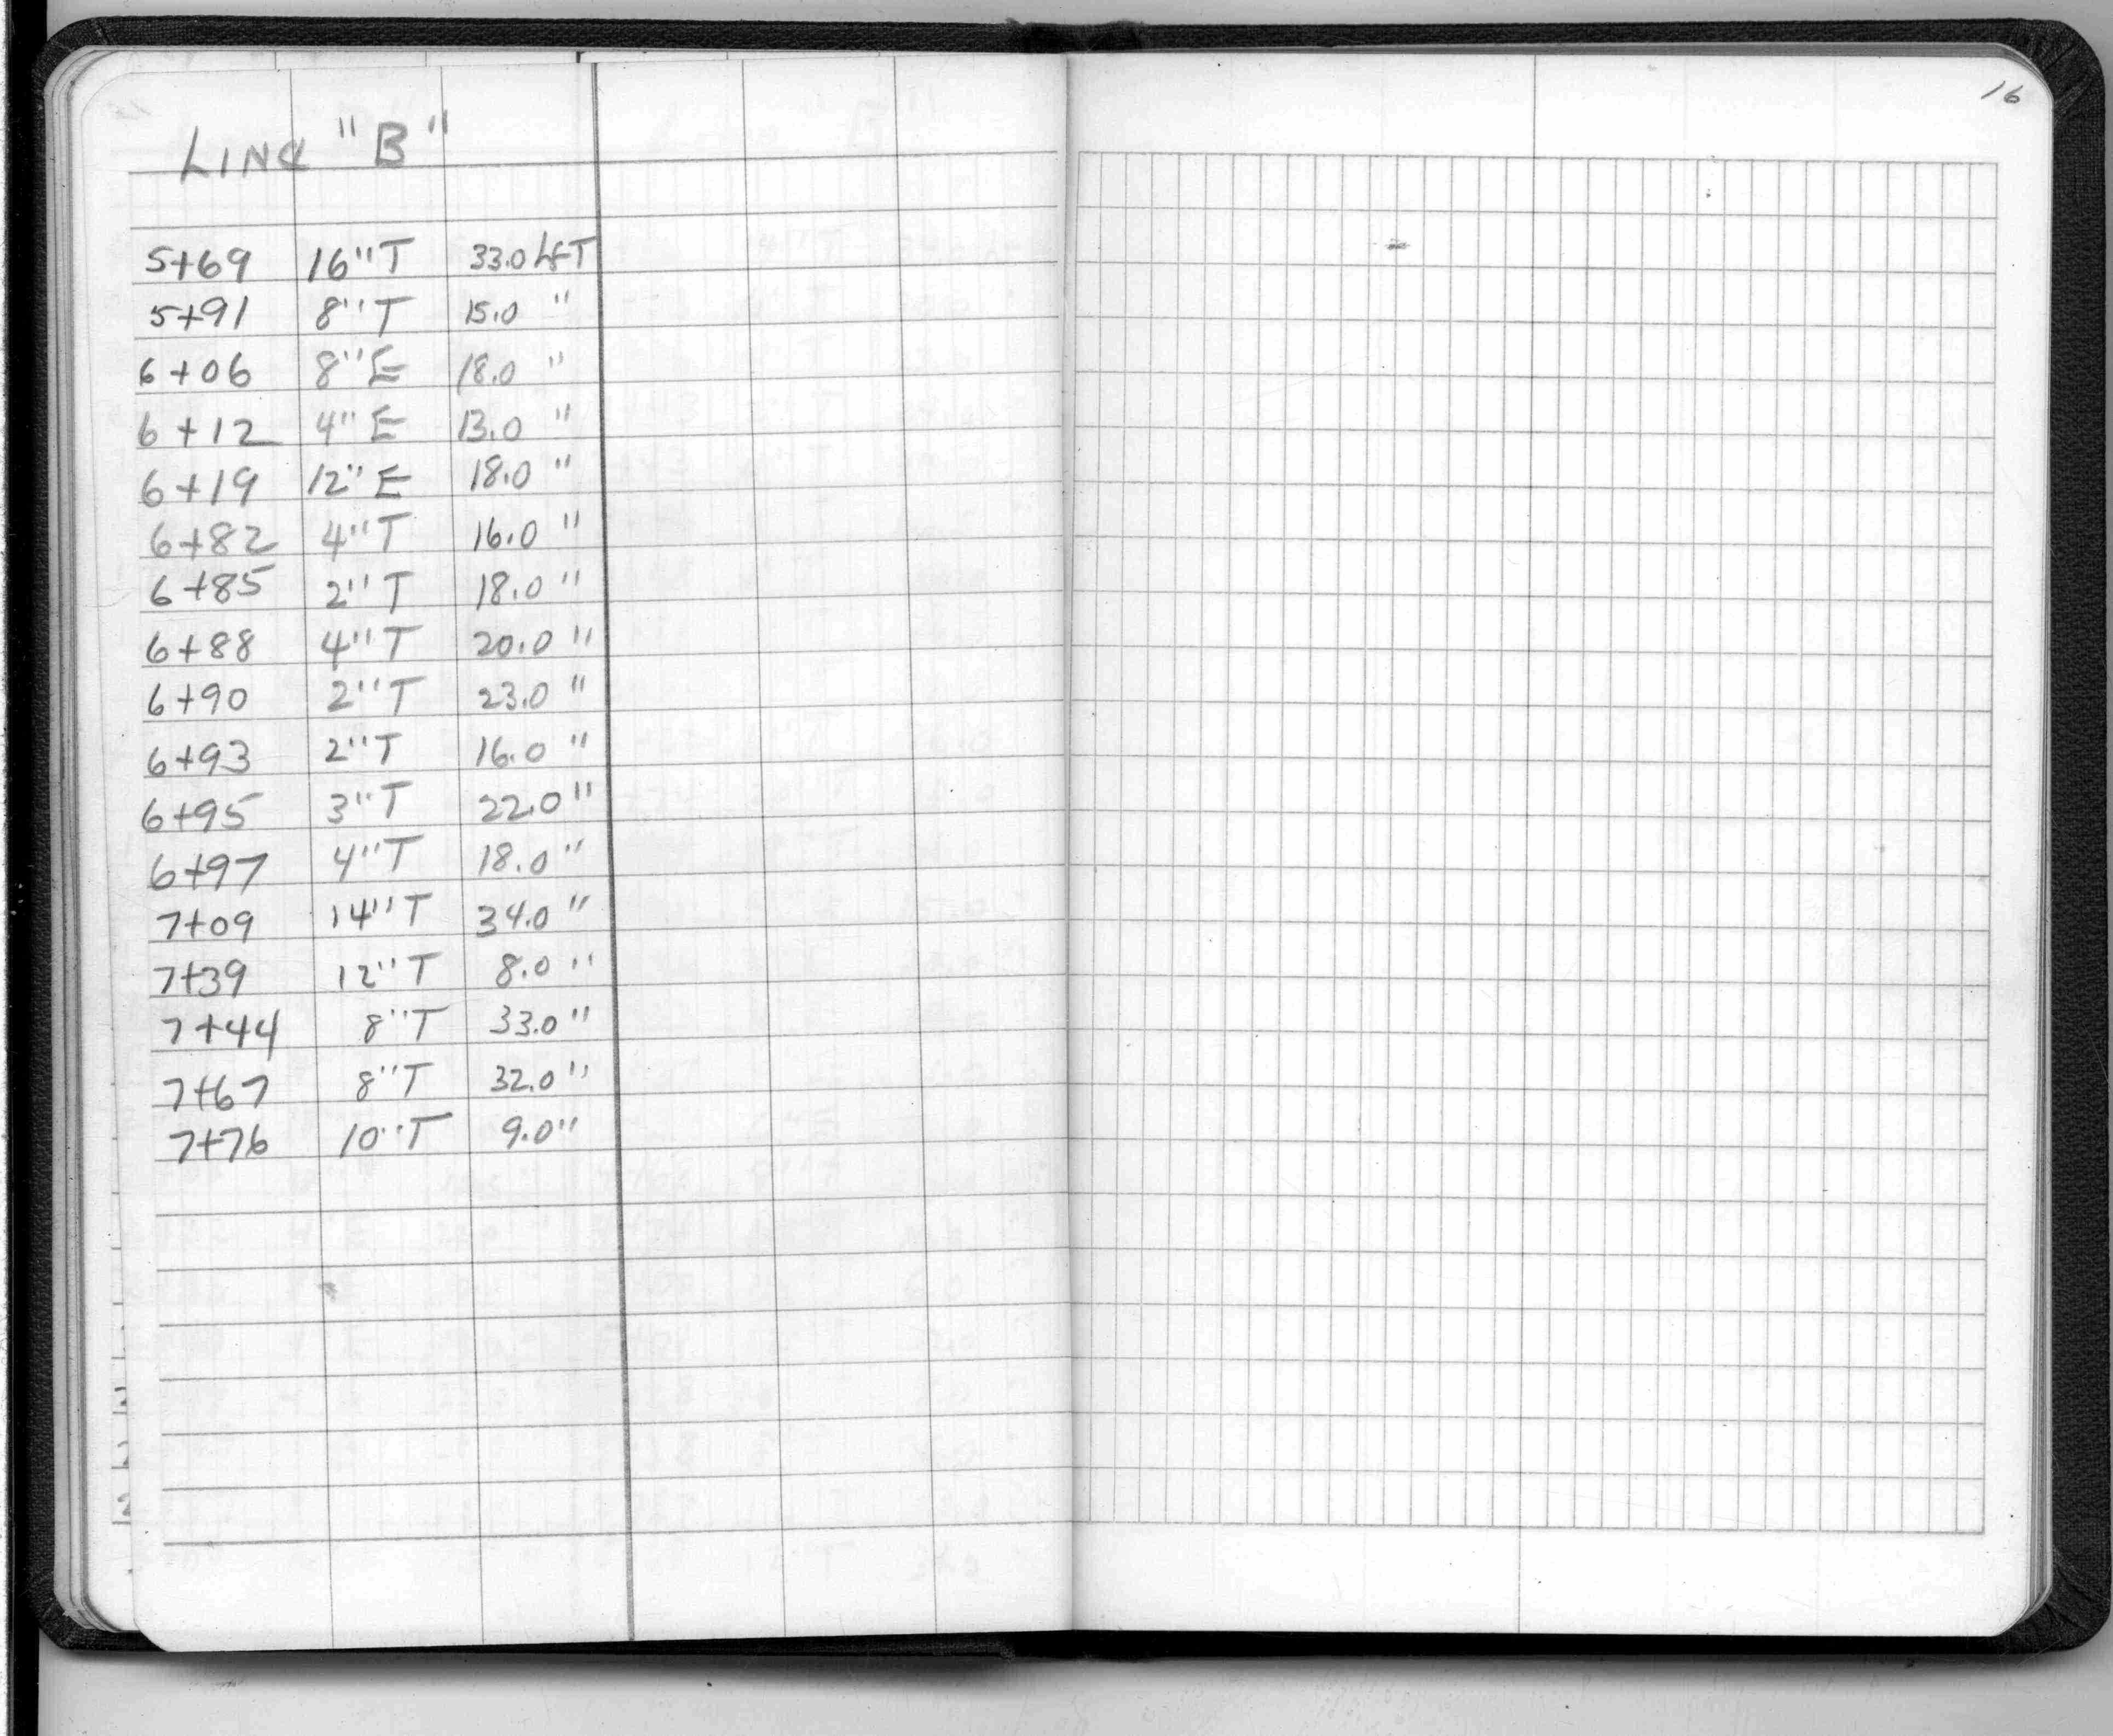 16
LINE "B"
5+69 16"T 33.0 LFT
5+91 8"T 15.0 "
6+06 8"E 18.0 "
6+12 4"E 13.0 "
6+19 12"E 18.0 "
6+82 4"T 16.0 "
6+85 2"T 18.0 "
6+88 4"T 20.0 "
6+90 2"T 23.0 "
6+93 2"T 16.0 "
6+95 3"T 22.0 "
6+97 4"T 18.0 "
7+09 14"T 34.0 "
7+39 12"T 8.0 "
7+44 8"T 33.0 "
7+67 8"T 32.0 "
7+76 10"T 9.0 "